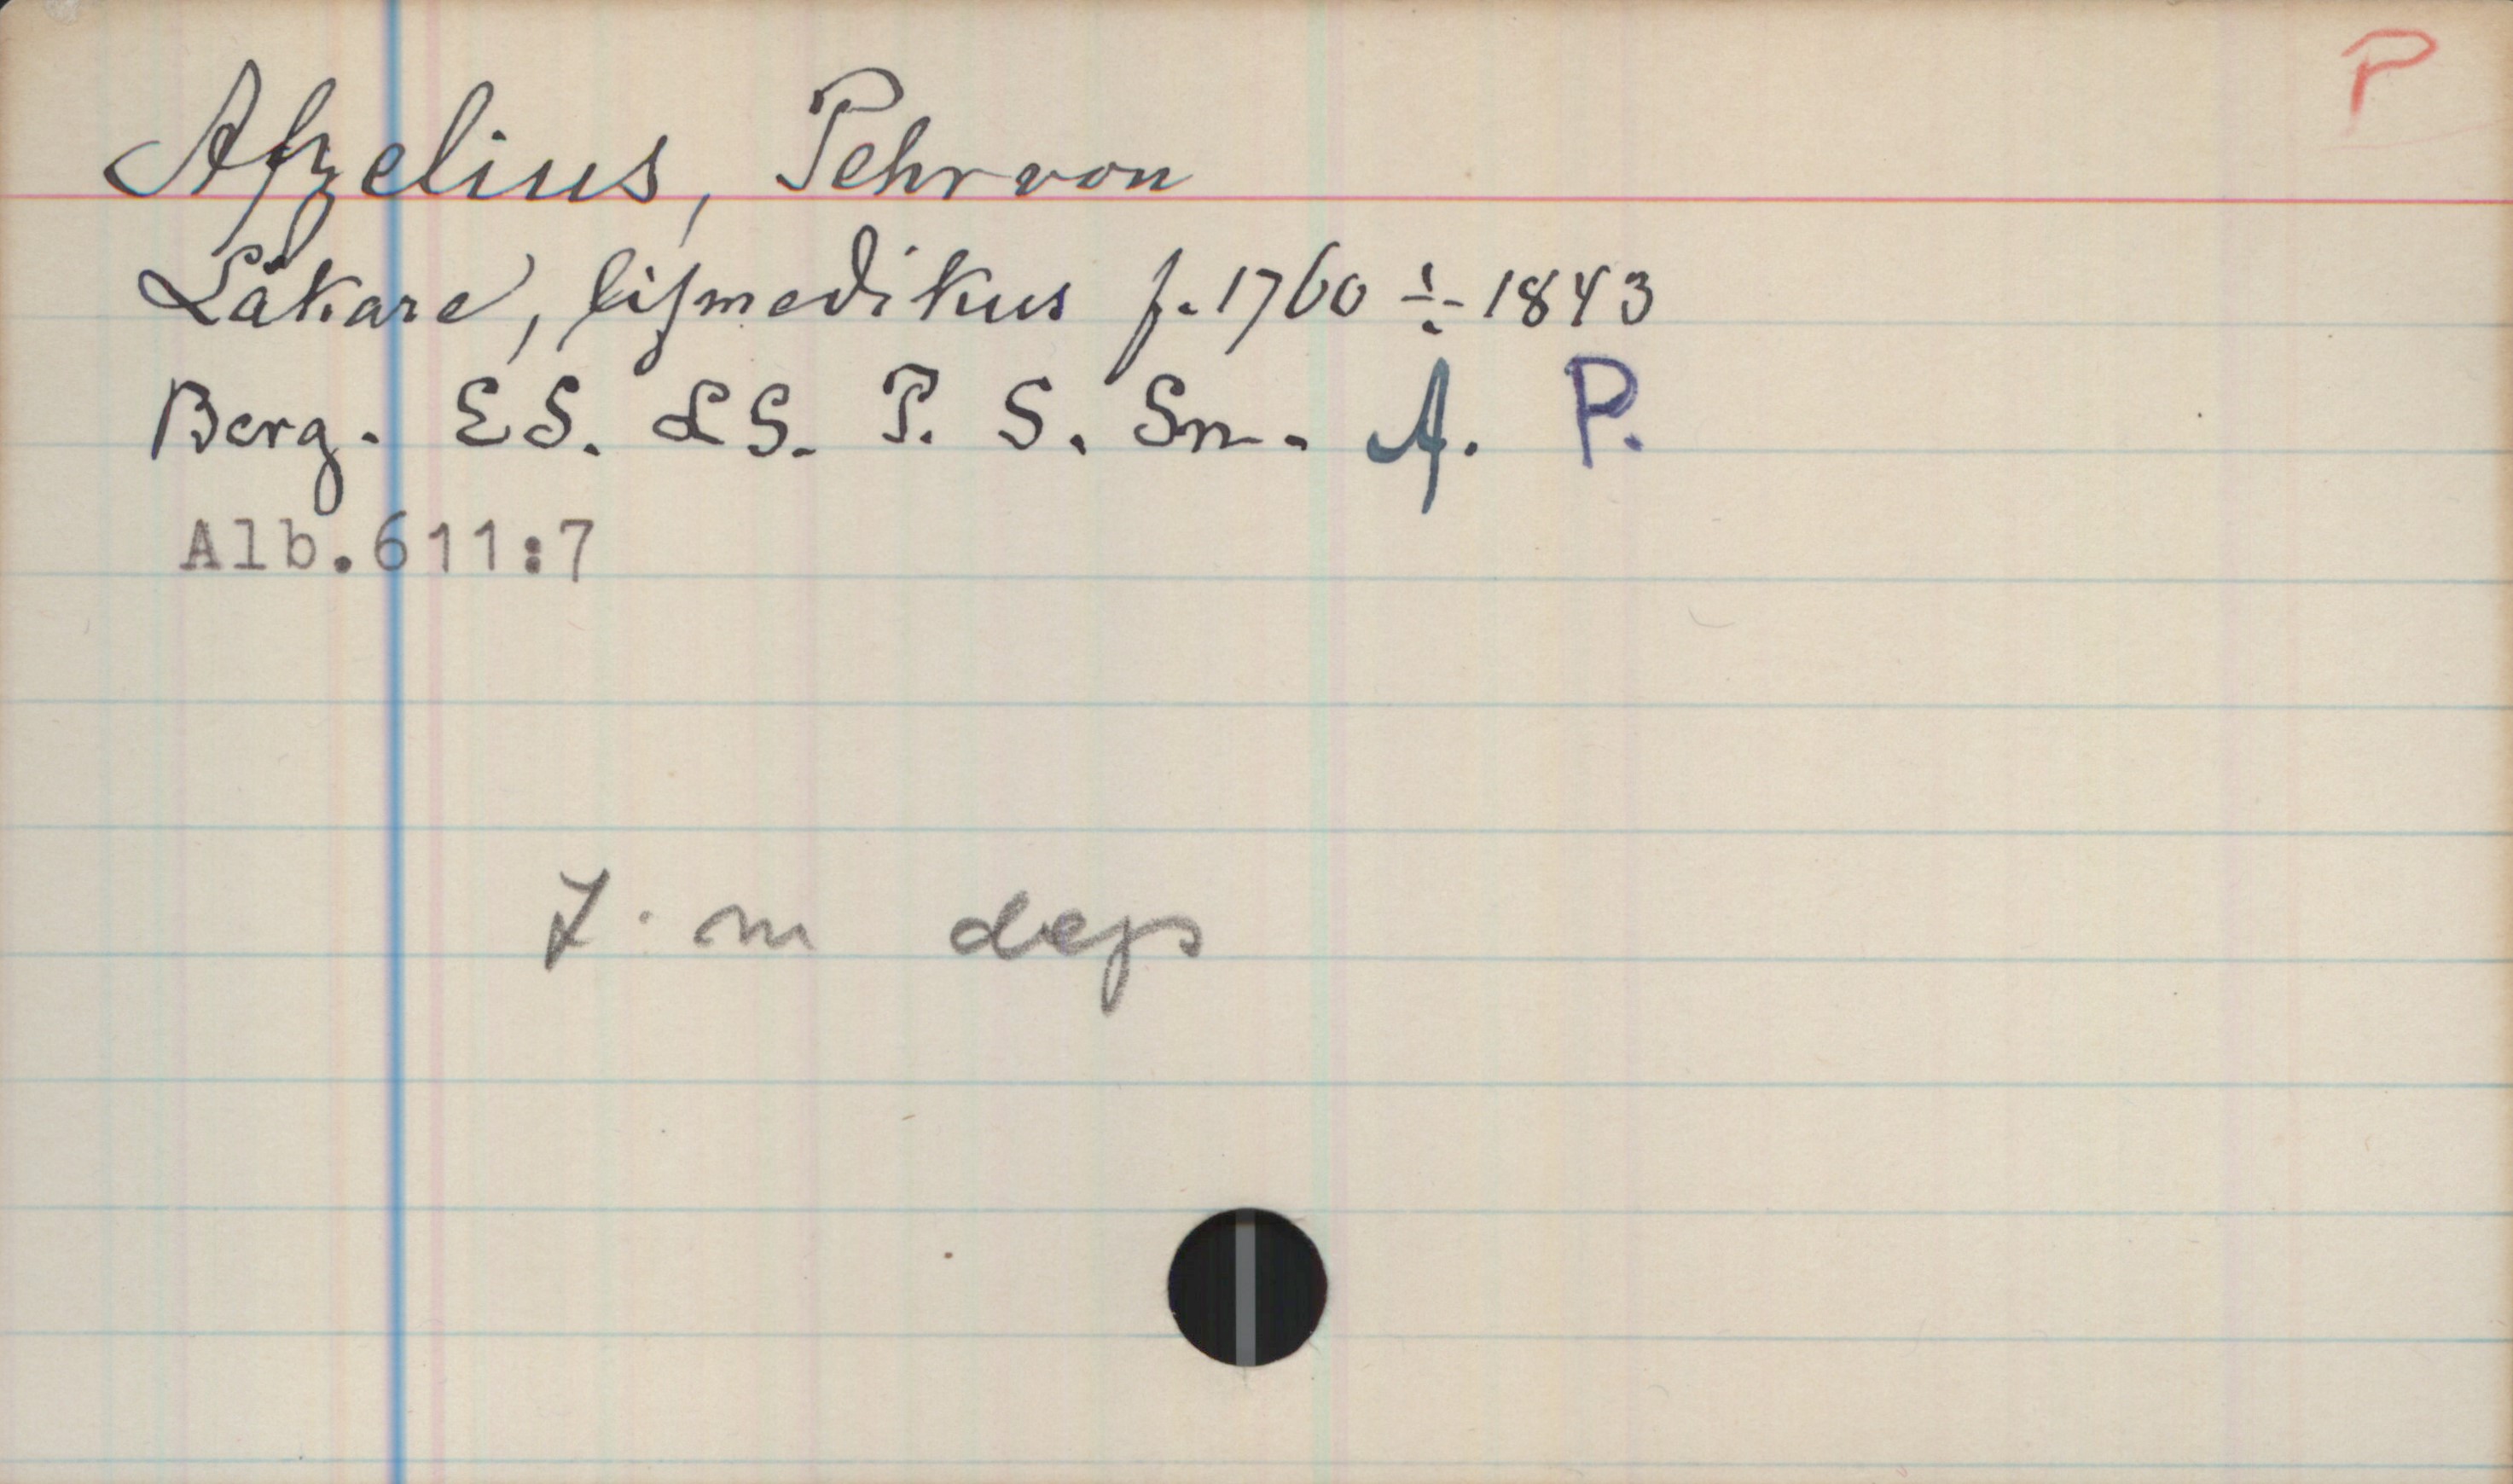 P
Afzelius, Pehr von
Läkare, lifmedikus f. 1760 ÷ 1843
Berg. ES. LS. P. S. Sn. A. P.
Alb.611:7
m dep